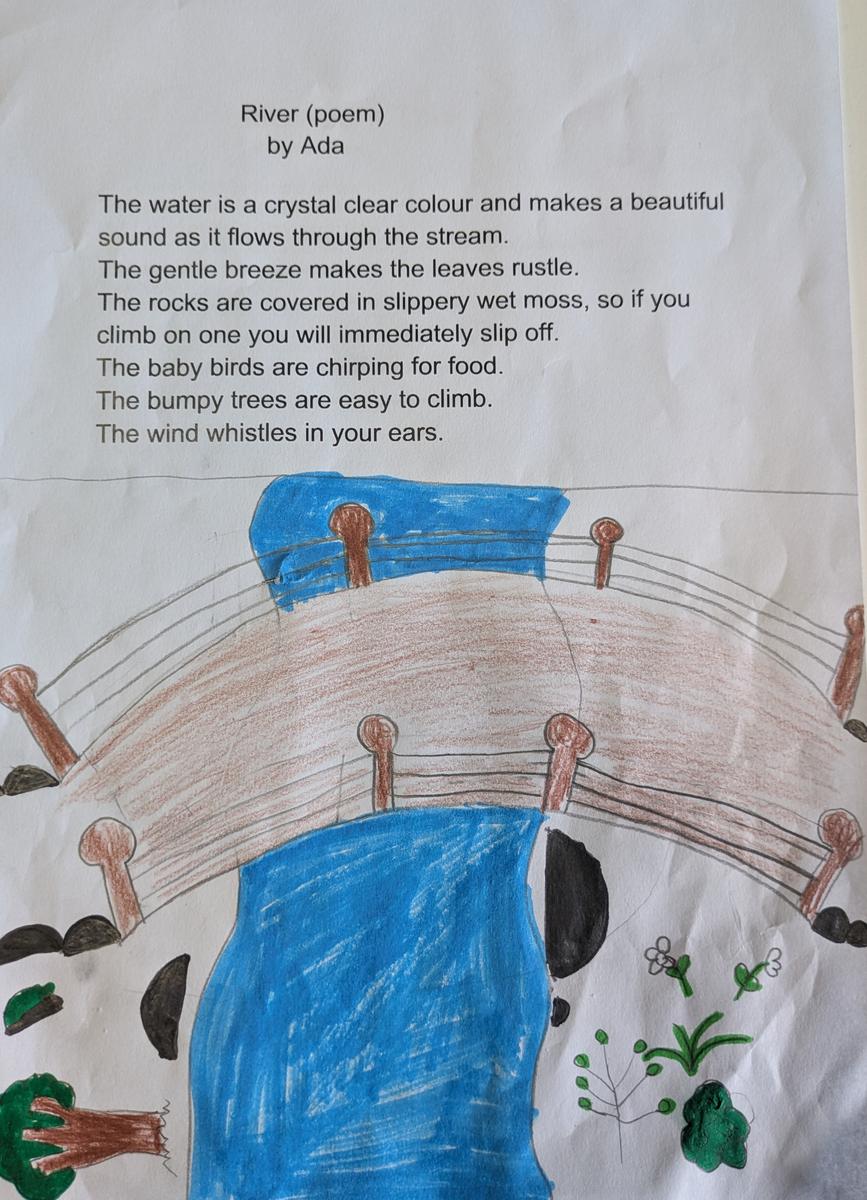 River (poem)
by Ada
The water is a crystal clear colour and makes a beautiful
sound as it flows through the stream.
The gentle breeze makes the leaves rustle.
The rocks are covered in slippery wet moss, so if you
climb on one you will immediately slip off.
The baby birds are chirping for food.
The bumpy trees are easy to climb.
The wind whistles in your ears.